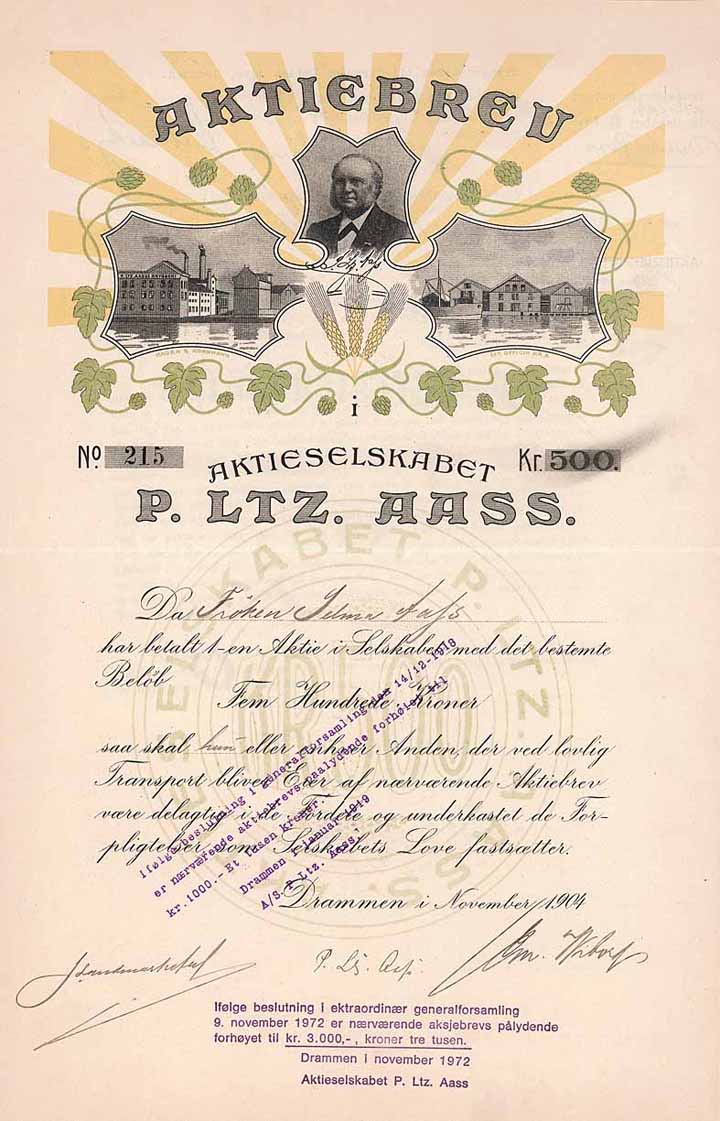 AKTIEBREV
P. Ltz. Aass
P. LTZ. AASS BRYGGERI
i
No 215
AKTIESELSKABET
Kr. 500.
P. LTZ. AASS.
AKTIESELSKABET P. LTZ. AASS.
KR. 500
Da Fröken Selma Aass
har betalt 1-en Aktie i Selskabet med det bestemte
Belöb
Fem Hundrede Kroner
saa skal hun eller enhver Anden, der ved lovlig
Transport bliver Eier af nærværende Aktiebrev
være delagtig i de Fordele og underkastet de For-
pligtelser, som Selskabets Love fastsætter.
Drammen i November 1904
Ifølge beslutning i generalforsamling den 14/12-1918
er nærværende aktiebrevs paalydende forhøiet til
kr. 1000.- Et tusen kroner.
Drammen i januar 1919
A/S. P. Ltz. Aass.
P. Ltz. Aass.
Ifølge beslutning i ektraordinær generalforsamling
9. november 1972 er nærværende aksjebrevs pålydende
forhøyet til kr. 3.000,-, kroner tre tusen.
Drammen i november 1972
Aktieselskabet P. Ltz. Aass